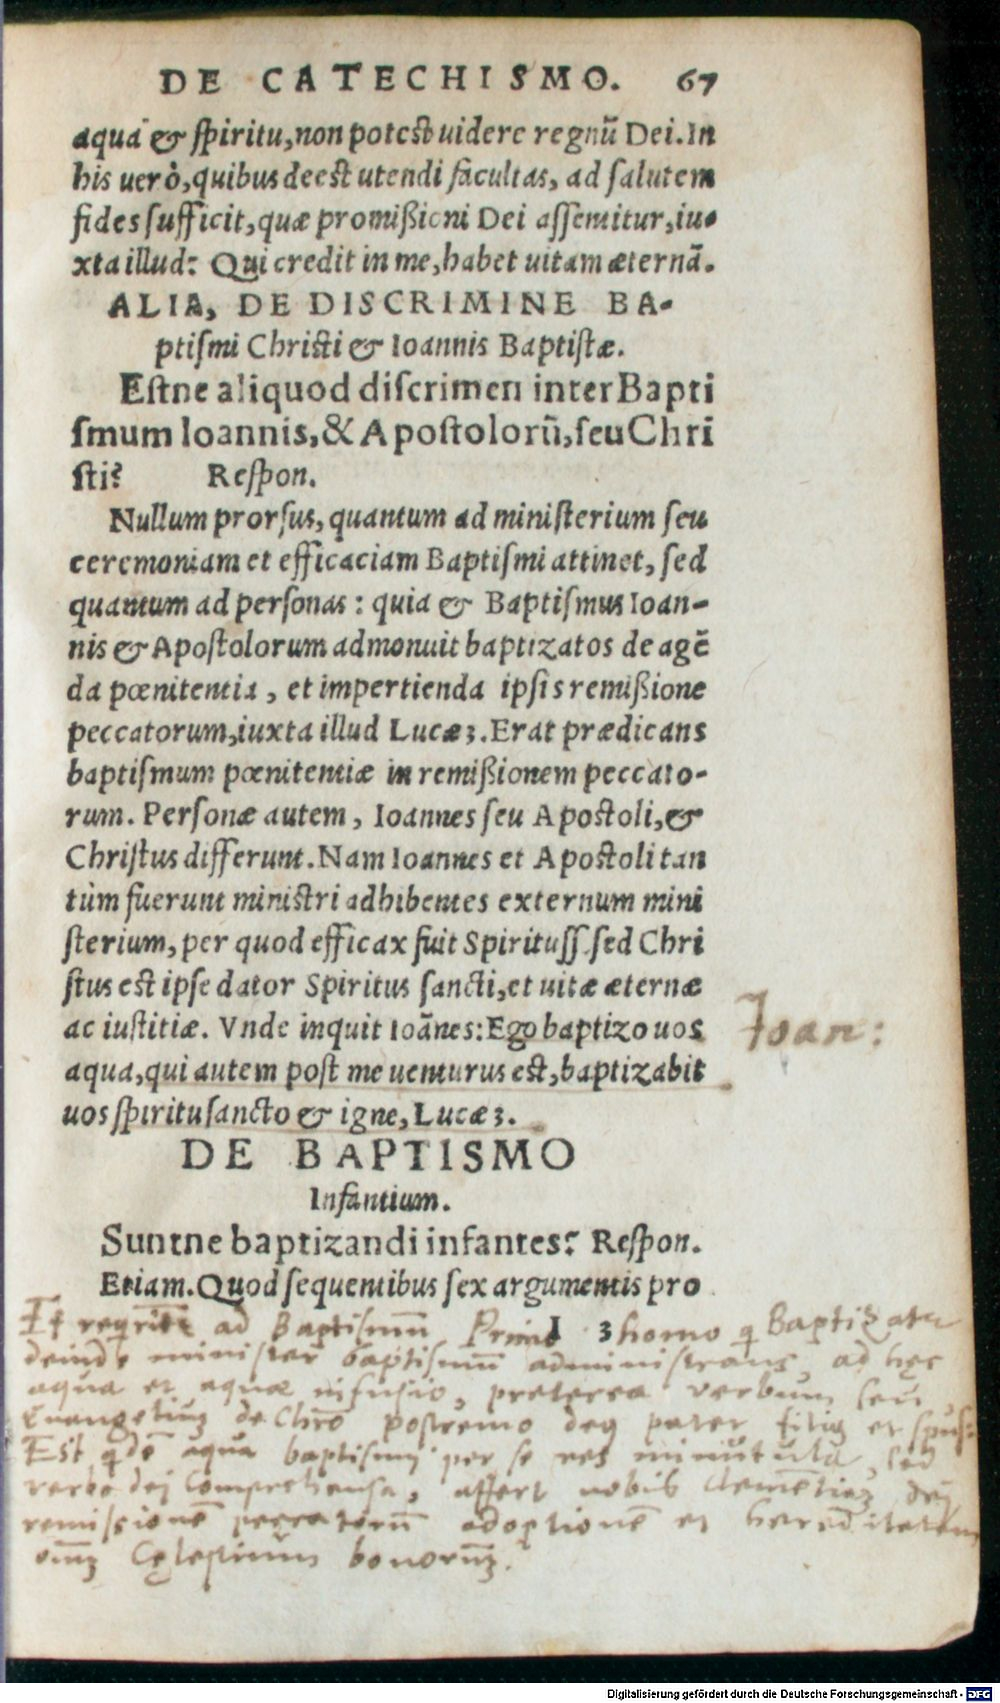 DE CATECHISMO. 67
aqua & spiritu, non potest uidere regnũ Dei. In
his uerò, quibus deest utendi facultas, ad salutem
fides sufficit, quæ promißioni Dei assentitur, iu-
xta illud: Qui credit in me, habet uitam æternã.
ALIA, DE DISCRIMINE BA-
ptismi Christi & Ioannis Baptistæ.
Estne aliquod discrimen inter Bapti
smum Ioannis, & Apostolorũ, seu Chri
sti? Respon.
Nullum prorsus, quantum ad ministerium seu
ceremoniam et efficaciam Baptismi attinet, sed
quantum ad personas: quia & Baptismus Ioan-
nis & Apostolorum admonuit baptizatos de agẽ
da pœnitentia, et impertienda ipsis remißione
peccatorum, iuxta illud Lucæ 3. Erat prædicans
baptismum pœnitentiæ in remißionem peccato-
rum. Personæ autem, Ioannes seu Apostoli, &
Christus differunt. Nam Ioannes et Apostoli tan
tùm fuerunt ministri adhibentes externum mini
sterium, per quod efficax fuit Spiritus s. sed Chri
stus est ipse dator Spiritus sancti, et uitæ æternæ
ac iustitiæ. Vnde inquit Ioãnes: Ego baptizo uos
Ioan:
aqua, qui autem post me uenturus est, baptizabit
uos spiritu sancto & igne, Lucæ 3.
DE BAPTISMO
Infantium.
Suntne baptizandi infantes? Respon.
Etiam. Quod sequentibus sex argumentis pro
I 3
ad Baptismũ Primo homo q Baptizatur
deinde minister baptismũ administrans, ad hęc
aqua et aquæ infusio, preterea verbum seu
Euangeliũ de Chrō postremo pater filiꝰ et spũs
Est aqua baptismi per se res minutula, sed
verbo dei Comprehensa, affert nobis clementiã dei
remissionē peccatorũ adoptionē et hereditatem
Cęlestium bonorũ.